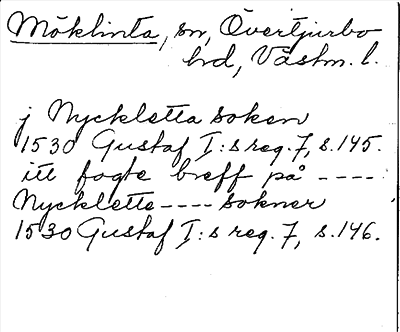 Möklinta, sn, Övertjurbo
hd, Västm. l.
j Nyckletta soken
1530 Gustaf I:s reg. 7, s. 145.
itt fogte breff på ----
Nycklette ---- sokner
1530 Gustaf I:s reg. 7, s. 146.